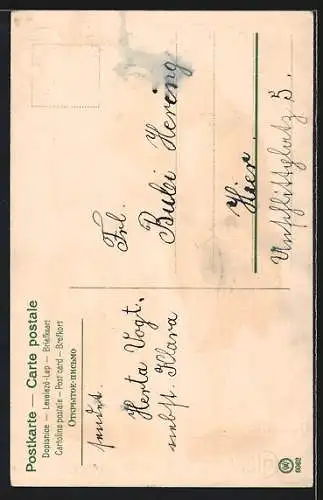 Postkarte — Carte postale
Dopisnice — Levelező-Lap — Briefkaart
Cartolina postale — Post card — Brefkort
Открытое-письмо
sendet.
Herta Vogt.
nebst. Klara
Frl.
Bubi Hering
Hier.
Unschlittplatz 5.
6962